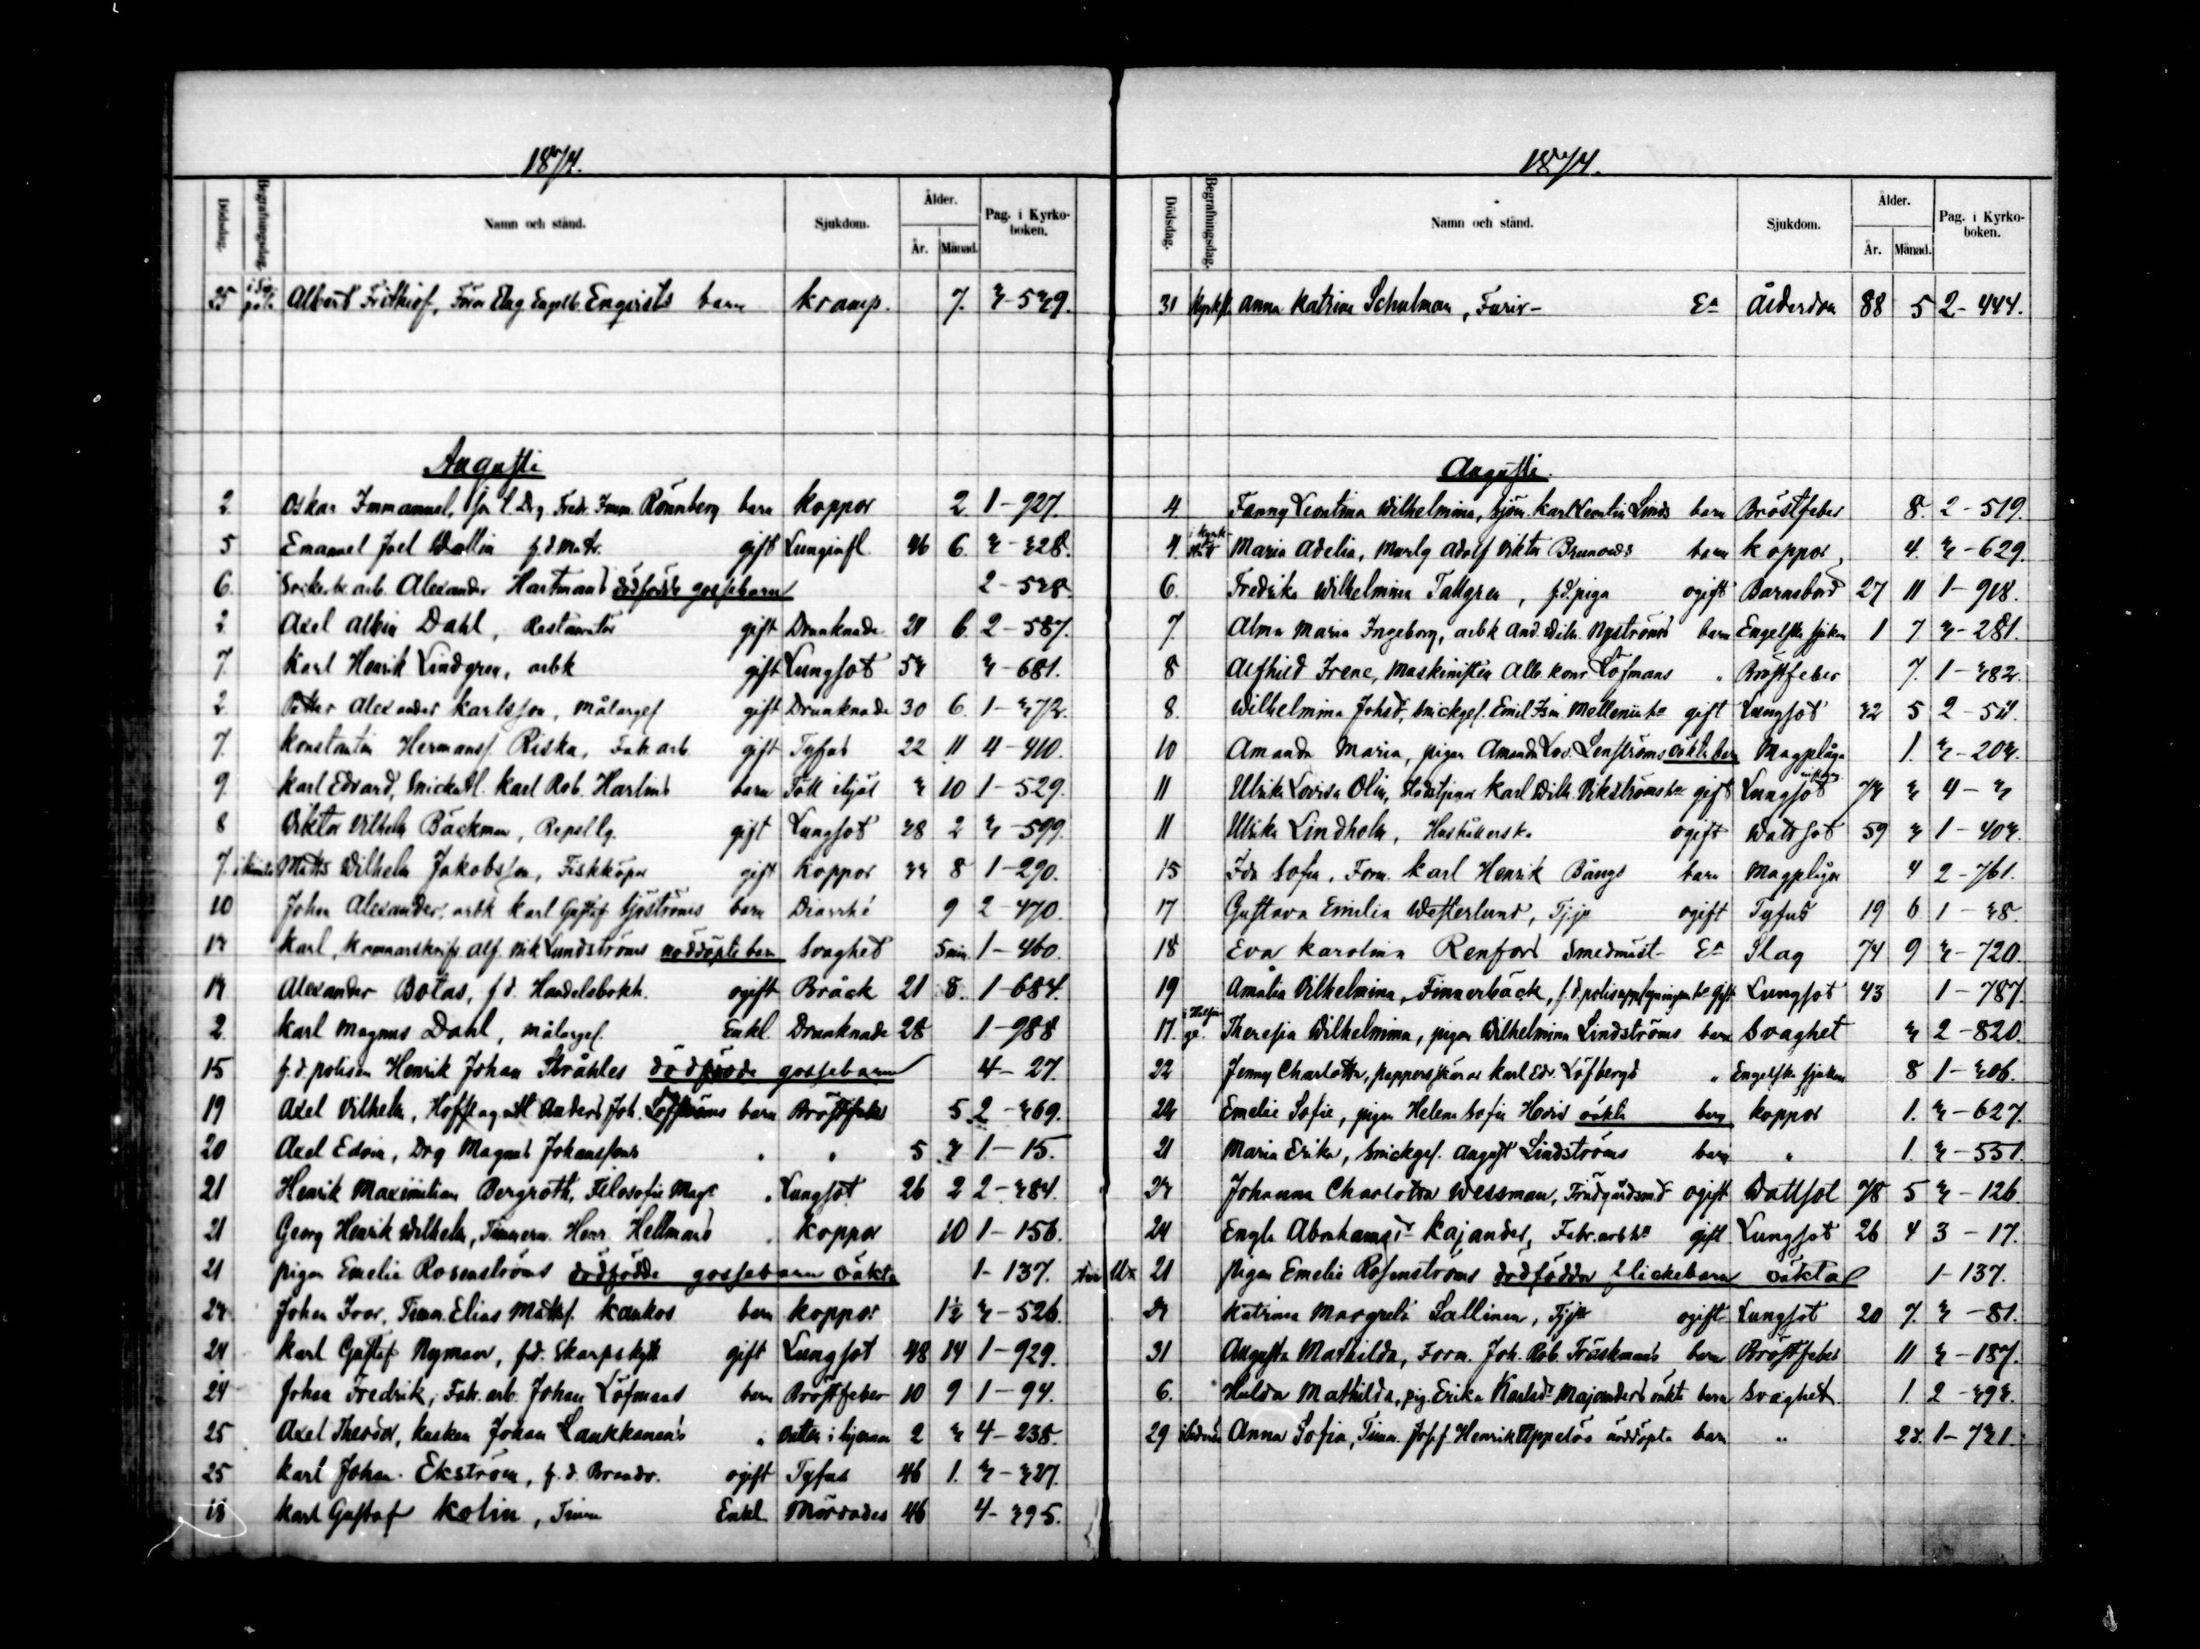 1874.
Dödsdag. Begrafningsdag. Namn och stånd. Sjukdom. Ålder. År. Månad. Pag. i Kyrkoboken.
25 Albert Frithiof, Engqvists barn kramp. 7. 3-539.
Augusti
2. Oskar Immanuel, Fredr. Imm. Rönnberg barn koppor 2. 1-927.
5 Emanuel Joel Wallin f.d. Matr. gift Lunginfl. 46 6. 3-328.
6. arb. Alexander Hartmans dödfödde gossebarn 2-538
2. Axel Albin Dahl, Restauratör gift Drunknade 21 6. 2-587.
7. Karl Henrik Lindgren, arbk gift Lungsot 53 3-681.
2. Petter Alexander Karlsson, Målargef gift Drunknade 30 6. 1-372.
7. Konstantin Hermansf. Riska, Fabr arb gift Tyfus 22 11 4-410.
9. Karl Edvard, Karl Rob. Harlins barn 3 10 1-529.
8 Viktor Vilhelm Bäckman, Repsllg. gift Lungsot 38 2 3-599.
7. Matts Wilhelm Jakobsson, Fiskköpar gift Koppor 33 8 1-290.
10 Johan Alexander, arbk Karl Gustaf Sjöströms barn Diarrhé 9 2-470.
13 Karl, Alf. Vik Lundströms nöddöpte barn Svaghet 5 min. 1-460.
13 Alexander Botas, f.d. Handelsbokh. ogift Bråck 21 8. 1-684.
2. Karl Magnus Dahl, Målargef. Enkl. Drunknade 28 1-988
15 f.d. polisen Henrik Johan Stråhles dödfödde gossebarn 4-27.
19 Axel Vilhelm, Anders Joh. Löfströms barn Bröstfeber 5 2-369.
20 Axel Edvin, Drg Magnus Johanssons " " 5 3 1-15.
21 Henrik Maximilian Bergroth, Filosofie Magr " Lungsot 26 2 2-384.
21 Georg Henrik Wilhelm, Timmerm. Henr. Hellmans " koppor 10 1-156.
21 pigan Emelie Rosenströms dödfödde gossebarn oäkta 1-137.
23 Johan Ivar, Timm. Elias Mattsf. Kankos barn koppor 1½ 3-526.
24 Karl Gustaf Nyman, f.d. Skarpskytt gift Lungsot 48 14 1-929.
24 Johan Fredrik, Fabr. arb. Johan Löfmans barn Bröstfeber 10 9 1-94.
25 Axel Theodor, Johan Laukkanens " Vatten i hjernan 2 3 4-238.
25 Karl Johan Ekström, f.d. Brandv. ogift Tyfus 46 1. 3-327.
18 Karl Gustaf Kolin, Timm Enkl. Mördades 46 4-395.
1874.
Dödsdag. Begrafningsdag. Namn och stånd. Sjukdom. Ålder. År. Månad. Pag. i Kyrkoboken.
31 Anna Katrina Schulman, Furir- Ea Ålderdom 88 5 2-444.
Augusti.
4. Fanny Leontina Wilhelmina, Sjöm. Karl Leontin Linds barn Bröstfeber 8. 2-519.
4. Maria Adelia, Murlg Adolf Viktor Brunous barn koppor 4. 3-629.
6. Fredrika Wilhelmina Tallgren, f.d. piga ogift Barnsbörd 27 11 1-918.
7 Alma Maria Ingeborg, arbk And. Wilh. Nyströms barn Engelska sjukan 1 7 3-281.
8 Alfhild Irene, Maskinisten Alb. Konr. Löfmans " Bröstfeber 7. 1-382.
8. Wilhelmina Johsd, Snickgef. Emil gift Lungsot 32 5 2-511.
10 Amanda Maria, pigan Amanda Lov. Lenströms oäkta barn Magplåga 1. 3-203.
11 Ulrika Lovisa Olin, Karl Wilh. Vikströms gift Lungsot 73 3 4-3
11 Ulrika Lindholm, Hushållerska ogift Wattsot 59 3 1-403.
15 Ida Sofia, Form. Karl Henrik Bångs barn Magplågor 4 2-761.
17 Gustava Emilia Westerlund, Tjp ogift Tyfus 19 6 1-38.
18 Eva Karolina Renfors Smedmäst- Ea Slag 74 9 3-720.
19 Amalia Vilhelmina Finnerbäck, gift Lungsot 43 1-787.
17. Theresia Wilhelmina, pigan Wilhelmina Lindströms barn Svaghet 3 2-820.
22 Jenny Charlotta, Karl Edv. Löfbergs " Engelska sjukan 8 1-306.
23 Emelie Sofie, pigan Helena Sofia oäkta barn koppor 1. 3-627.
21 Maria Erika, Snickgef. August Lindströms barn " 1. 3-551.
23 Johanna Charlotta Wessman, ogift Wattsot 78 5 3-126.
24 Engla Abrahamsdr Kajander, Fabr. arbka gift Lungsot 26 4 3-17.
21 pigan Emelie Rosenströms dödfödda flickebarn oäkta 1-137.
23 Katrina Margreta Sallinen, Tjp ogift Lungsot 20 7. 3-81.
31 Augusta Mathilda, Form. Joh. Rob. Träskmans barn Bröstfeber 11 3-187.
6. Hulda Mathilda, pig. Erika Karlsdr Majanders oäkt barn Svaghet 1. 2-393.
29 Anna Sofia, Timm. Josef Henrik Uppelös nöddöpta barn " 2 d. 1-731.